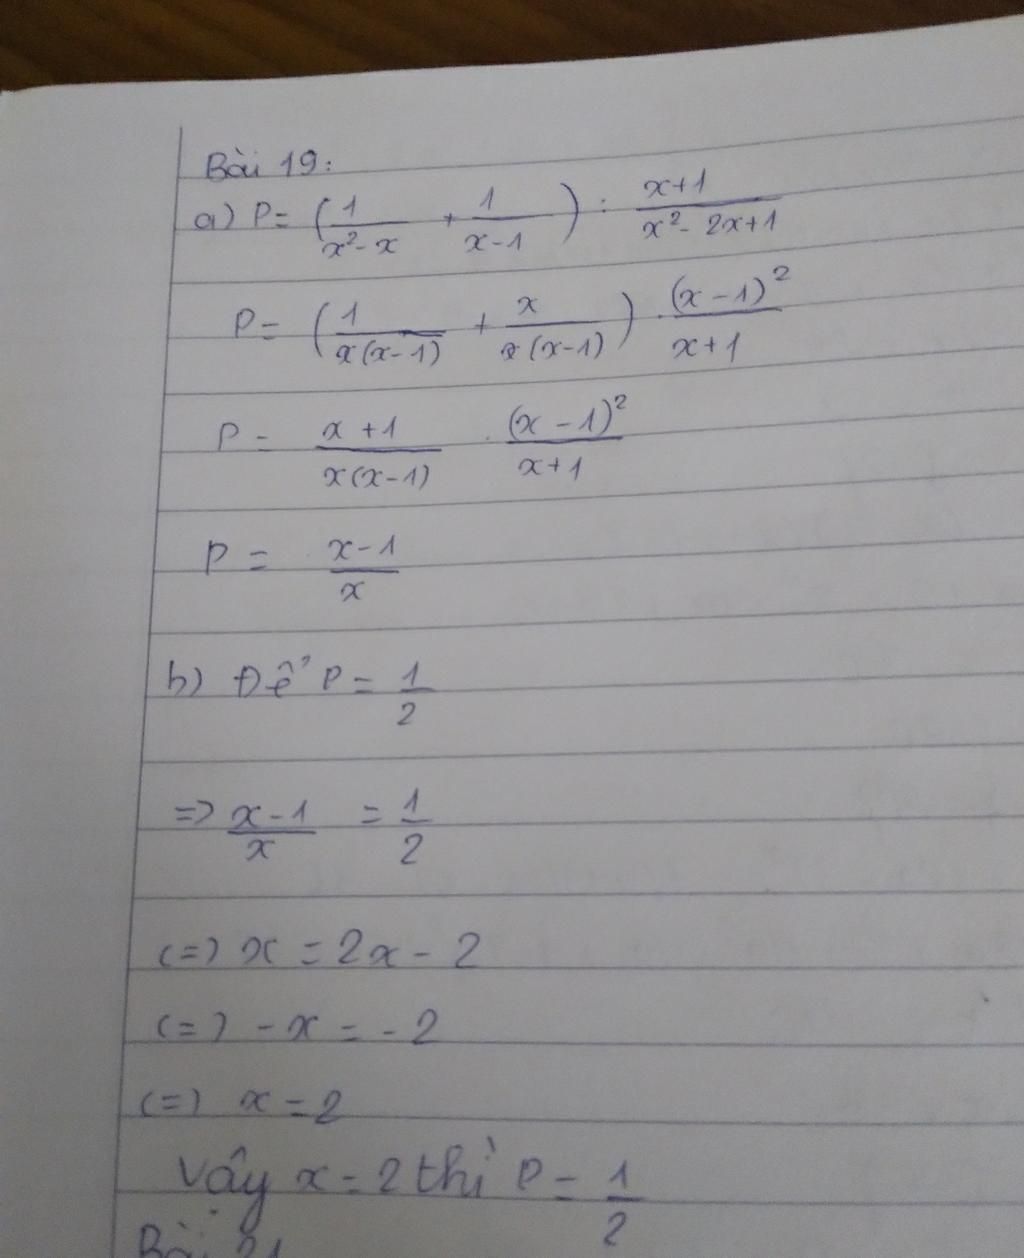 Bài 19:
a) P = (1/(x² - x) + 1/(x - 1)) : (x+1)/(x² - 2x + 1)
P = (1/(x(x - 1)) + x/(x(x-1))) . (x - 1)²/(x+1)
P = (x + 1)/(x(x - 1)) . (x - 1)²/(x+1)
P = (x - 1)/x
b) Để P = 1/2
=> (x - 1)/x = 1/2
(=) x = 2x - 2
(=) - x = - 2
(=) x = 2
Vậy x = 2 thì P = 1/2
Bài 21